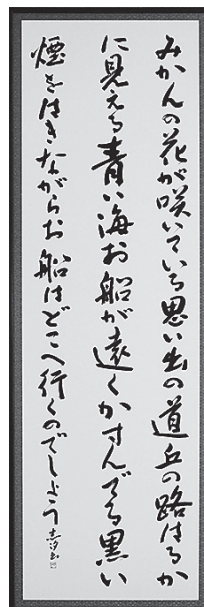 みかんの花が咲いている思い出の道丘の路はるか
に見える青い海お船が遠くかすんでる黒い
煙をはきながらお船はどこへ行くのでしょう